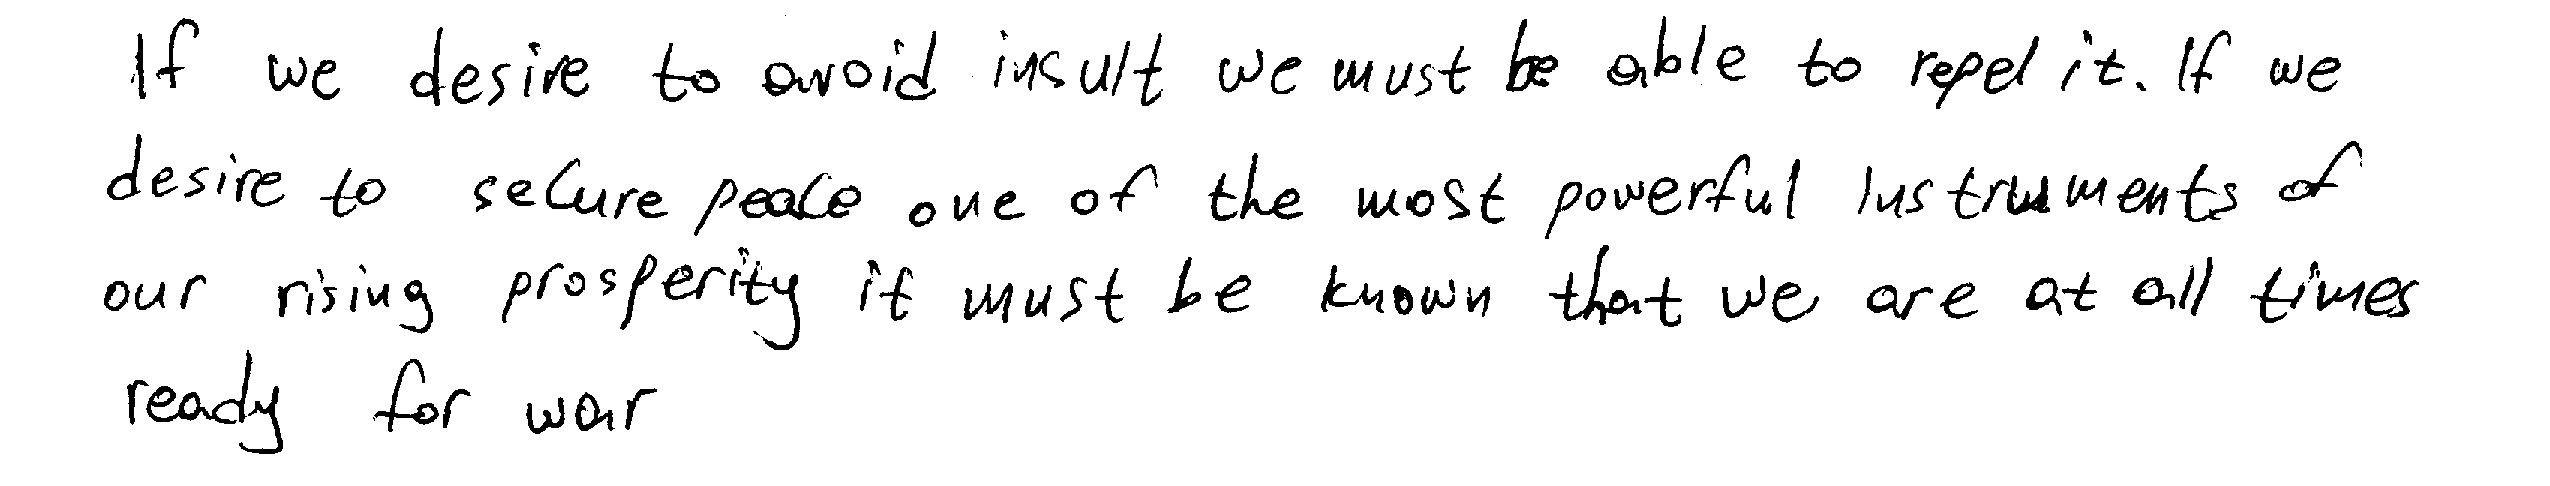 If we desire to avoid insult we must be able to repel it. If we
desire to secure peace one of the most powerful instruments of
our rising prosperity it must be known that we are at all times
ready for war